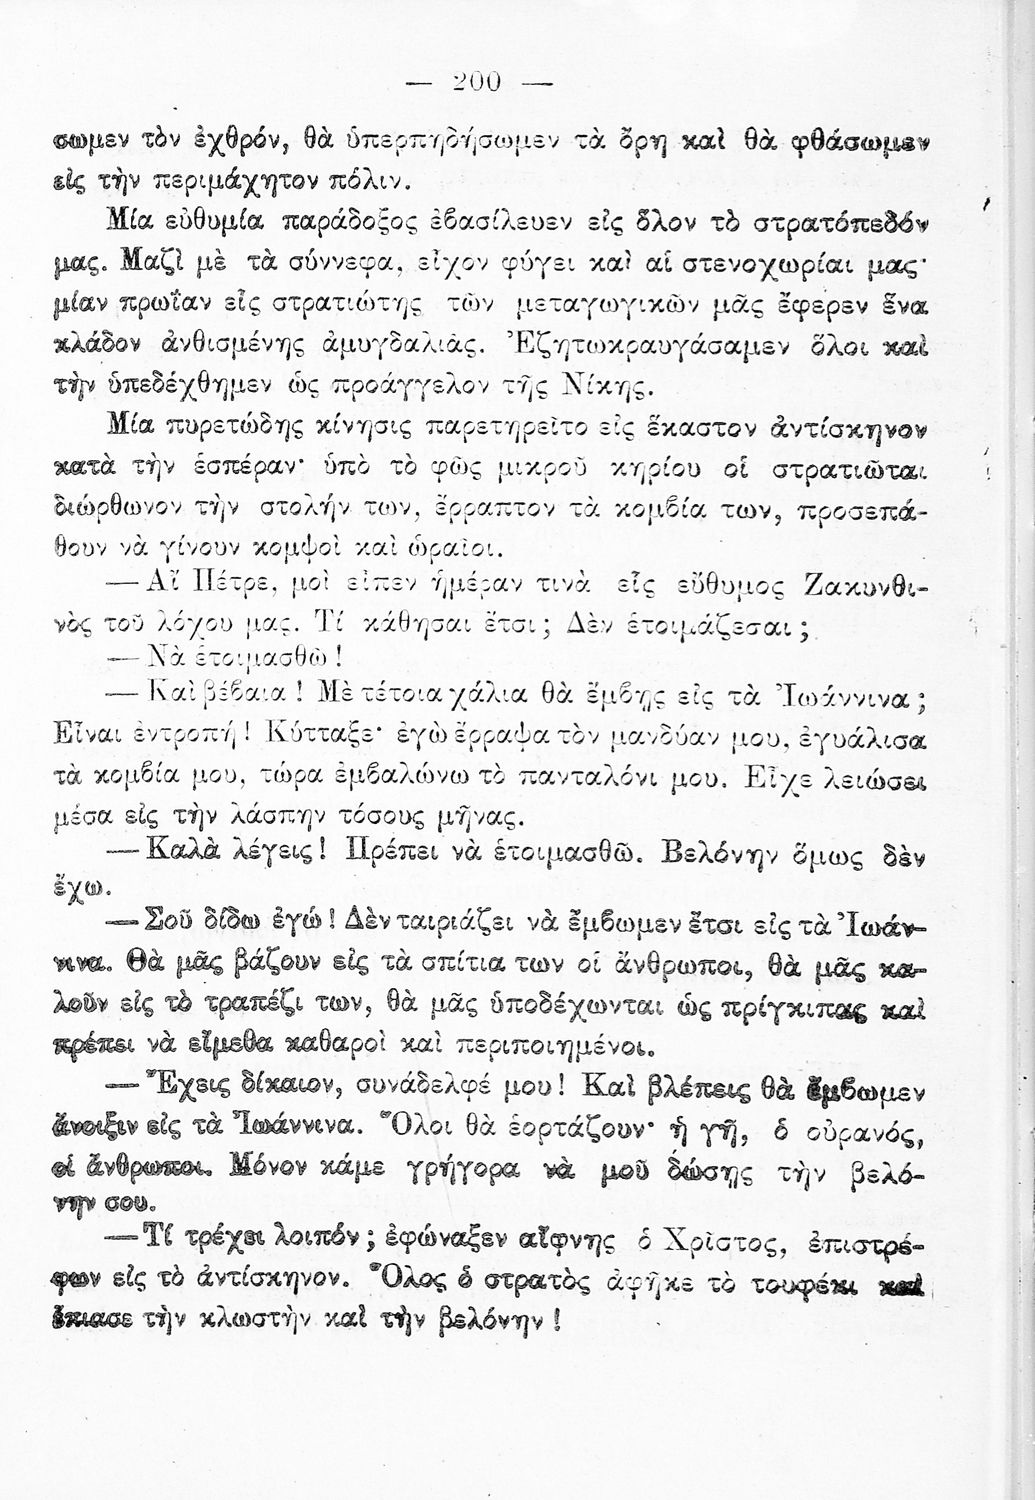 — 200 —
σωμεν τὸν ἐχθρόν, θὰ ὑπερπηδήσωμεν τὰ ὄρη καὶ θὰ φθάσωμεν
εἰς τὴν περιμάχητον πόλιν.
Μία εὐθυμία παράδοξος ἐβασίλευεν εἰς ὅλον τὸ στρατόπεδόν
μας. Μαζὶ μὲ τὰ σύννεφα, εἶχον φύγει καὶ αἱ στενοχωρίαι μας·
μίαν πρωΐαν εἷς στρατιώτης τῶν μεταγωγικῶν μᾶς ἔφερεν ἕνα
κλάδον ἀνθισμένης ἀμυγδαλιᾶς. Ἐζητωκραυγάσαμεν ὅλοι καὶ
τὴν ὑπεδέχθημεν ὡς προάγγελον τῆς Νίκης.
Μία πυρετώδης κίνησις παρετηρεῖτο εἰς ἕκαστον ἀντίσκηνον
κατὰ τὴν ἑσπέραν· ὑπὸ τὸ φῶς μικροῦ κηρίου οἱ στρατιῶται
διώρθωνον τὴν στολήν των, ἔρραπτον τὰ κομβία των, προσεπά-
θουν νὰ γίνουν κομψοὶ καὶ ὡραῖοι.
— Αἴ Πέτρε, μοὶ εἶπεν ἡμέραν τινὰ εἷς εὔθυμος Ζακυνθι-
νὸς τοῦ λόχου μας. Τί κάθησαι ἔτσι; Δὲν ἑτοιμάζεσαι;
— Νὰ ἑτοιμασθῶ!
— Καὶ βέβαια! Μὲ τέτοια χάλια θὰ ἔμβῃς εἰς τὰ Ἰωάννινα;
Εἶναι ἐντροπή! Κύτταξε· ἐγὼ ἔρραψα τὸν μανδύαν μου, ἐγυάλισα
τὰ κομβία μου, τώρα ἐμβαλώνω τὸ πανταλόνι μου. Εἶχε λειώσει
μέσα εἰς τὴν λάσπην τόσους μῆνας.
— Καλὰ λέγεις! Πρέπει νὰ ἑτοιμασθῶ. Βελόνην ὅμως δὲν
ἔχω.
— Σοῦ δίδω ἐγώ! Δὲν ταιριάζει νὰ ἔμβωμεν ἔτσι εἰς τὰ Ἰωάν-
νινα. Θὰ μᾶς βάζουν εἰς τὰ σπίτια των οἱ ἄνθρωποι, θὰ μᾶς κα-
λοῦν εἰς τὸ τραπέζι των, θὰ μᾶς ὑποδέχωνται ὡς πρίγκιπας καὶ
πρέπει νὰ εἴμεθα καθαροὶ καὶ περιποιημένοι.
— Ἔχεις δίκαιον, συνάδελφέ μου! Καὶ βλέπεις θὰ ἔμβωμεν
ἄνοιξιν εἰς τὰ Ἰωάννινα. Ὅλοι θὰ ἑορτάζουν· ἡ γῆ, ὁ οὐρανός,
οἱ ἄνθρωποι. Μόνον κάμε γρήγορα νὰ μοῦ δώσῃς τὴν βελό-
νην σου.
— Τί τρέχει λοιπόν; ἐφώναξεν αἴφνης ὁ Χρῖστος, ἐπιστρέ-
φων εἰς τὸ ἀντίσκηνον. Ὅλος ὁ στρατὸς ἀφῆκε τὸ τουφέκι καὶ
ἔπιασε τὴν κλωστὴν καὶ τὴν βελόνην!